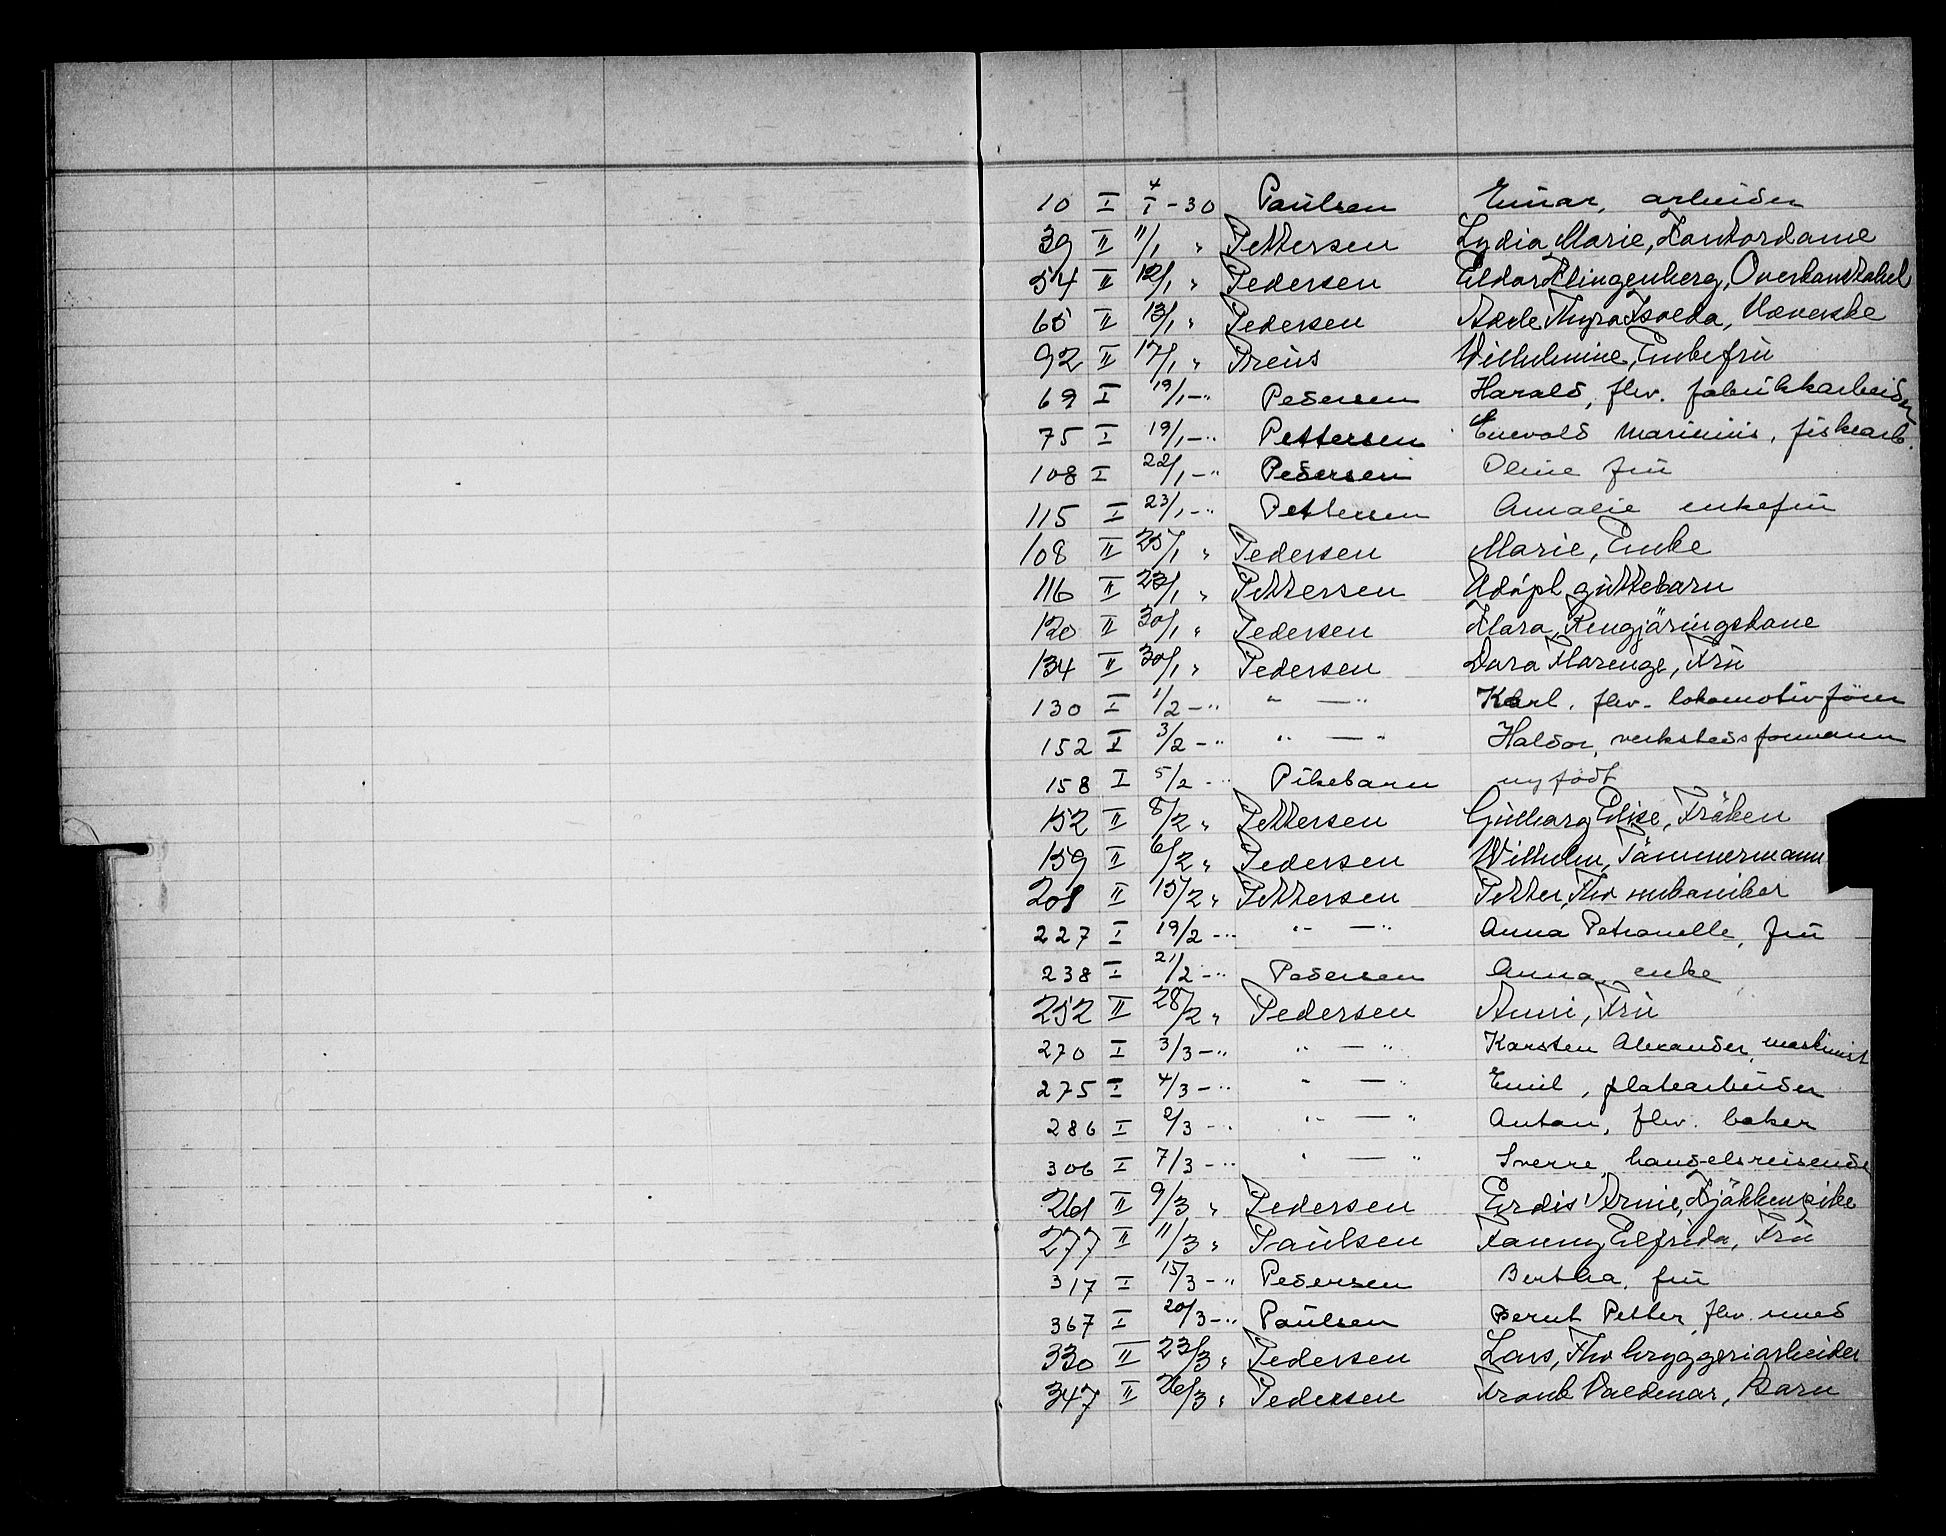 10 I 4/1 - 30 Paulsen Einar, arbeider
39 II 11/1 " Pettersen Lydia Marie, Kontordame
54 II 12/1 " Pedersen Eldor Klingenberg, Overkonstabel
65 II 13/1 " Pedersen Adele Thyra Isolda, Væverske
92 II 17/1 " Preus Wilhelmine, Enkefru
69 I 19/1 - " Pedersen Harald, fhv. fabrikkarbeider
75 I 19/1 - " Pettersen Enevald Marinius, fiskearb.
108 I 22/1 - " Pedersen Oline fru
115 I 23/1 - " Pettersen Amalie enkefru
108 II 25/1 " Pedersen Marie, Enke
116 II 23/1 " Pettersen Udöpt guttebarn
120 II 30/1 " Pedersen Klara, Rengjöringskone
134 II 30/1 " Pedersen Dora Florenze, Fru
130 I 1/2 - " " — " Karl, fhv. lokomotivförer
152 I 3/2 - " " — " Haldor, verkstedsformann
158 I 5/2 - " Pikebarn nyfödt
152 II 8/2 " Pettersen Gulborg Elise, Fröken
159 II 6/2 " Pedersen Wilhelm, Tömmermann
208 II 15/2 " Pettersen Petter, Fhv mekaniker
227 I 19/2 - " " — " Anna Petronelle, fru
238 I 21/2 - " Pedersen Anna enke
252 II 28/2 " Pedersen Anni, Fru
270 I 3/3 - " " — " Karsten Alexander, maskinist
275 I 4/3 - " " — " Emil, platearbeider
286 I 2/3 - " " — " Anton, fhv. baker
306 I 7/3 - " " — " Sverre, handelsreisende
261 II 9/3 " Pedersen Erdis Arnie, Kjökkenpike
277 II 11/3 " Paulsen Fanny Elfrida, Fru
317 I 15/3 - " Pedersen Bertha, fru
367 I 20/3 - " Paulsen Bernt Petter, fhv. smed
330 II 23/3 " Pedersen Lars, Fhv bryggeriarbeider
347 II 26/3 " Pedersen Frank Valdemar, Barn